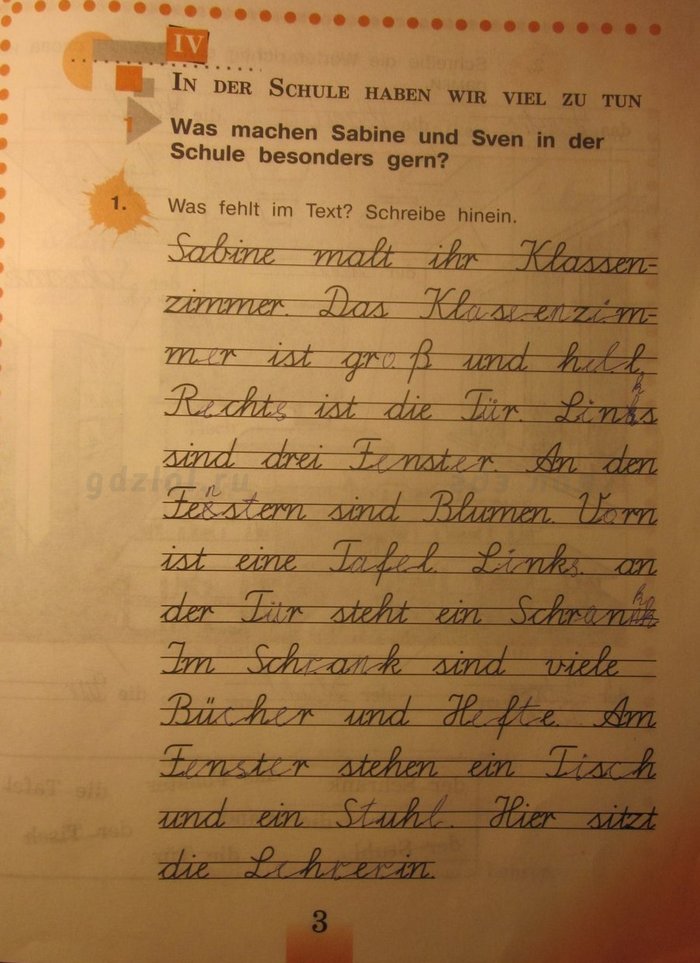 IV
IN DER SCHULE HABEN WIR VIEL ZU TUN
1 Was machen Sabine und Sven in der
Schule besonders gern?
1. Was fehlt im Text? Schreibe hinein.
Sabine malt ihr Klassen-
zimmer. Das Klassenzim-
mer ist groß und hell.
Rechts ist die Tür. Links
sind drei Fenster. An den
Fenstern sind Blumen. Vorn
ist eine Tafel. Links an
der Tür steht ein Schrank
Im Schrank sind viele
Bücher und Hefte. Am
Fenster stehen ein Tisch
und ein Stuhl. Hier sitzt
die Lehrerin.
3